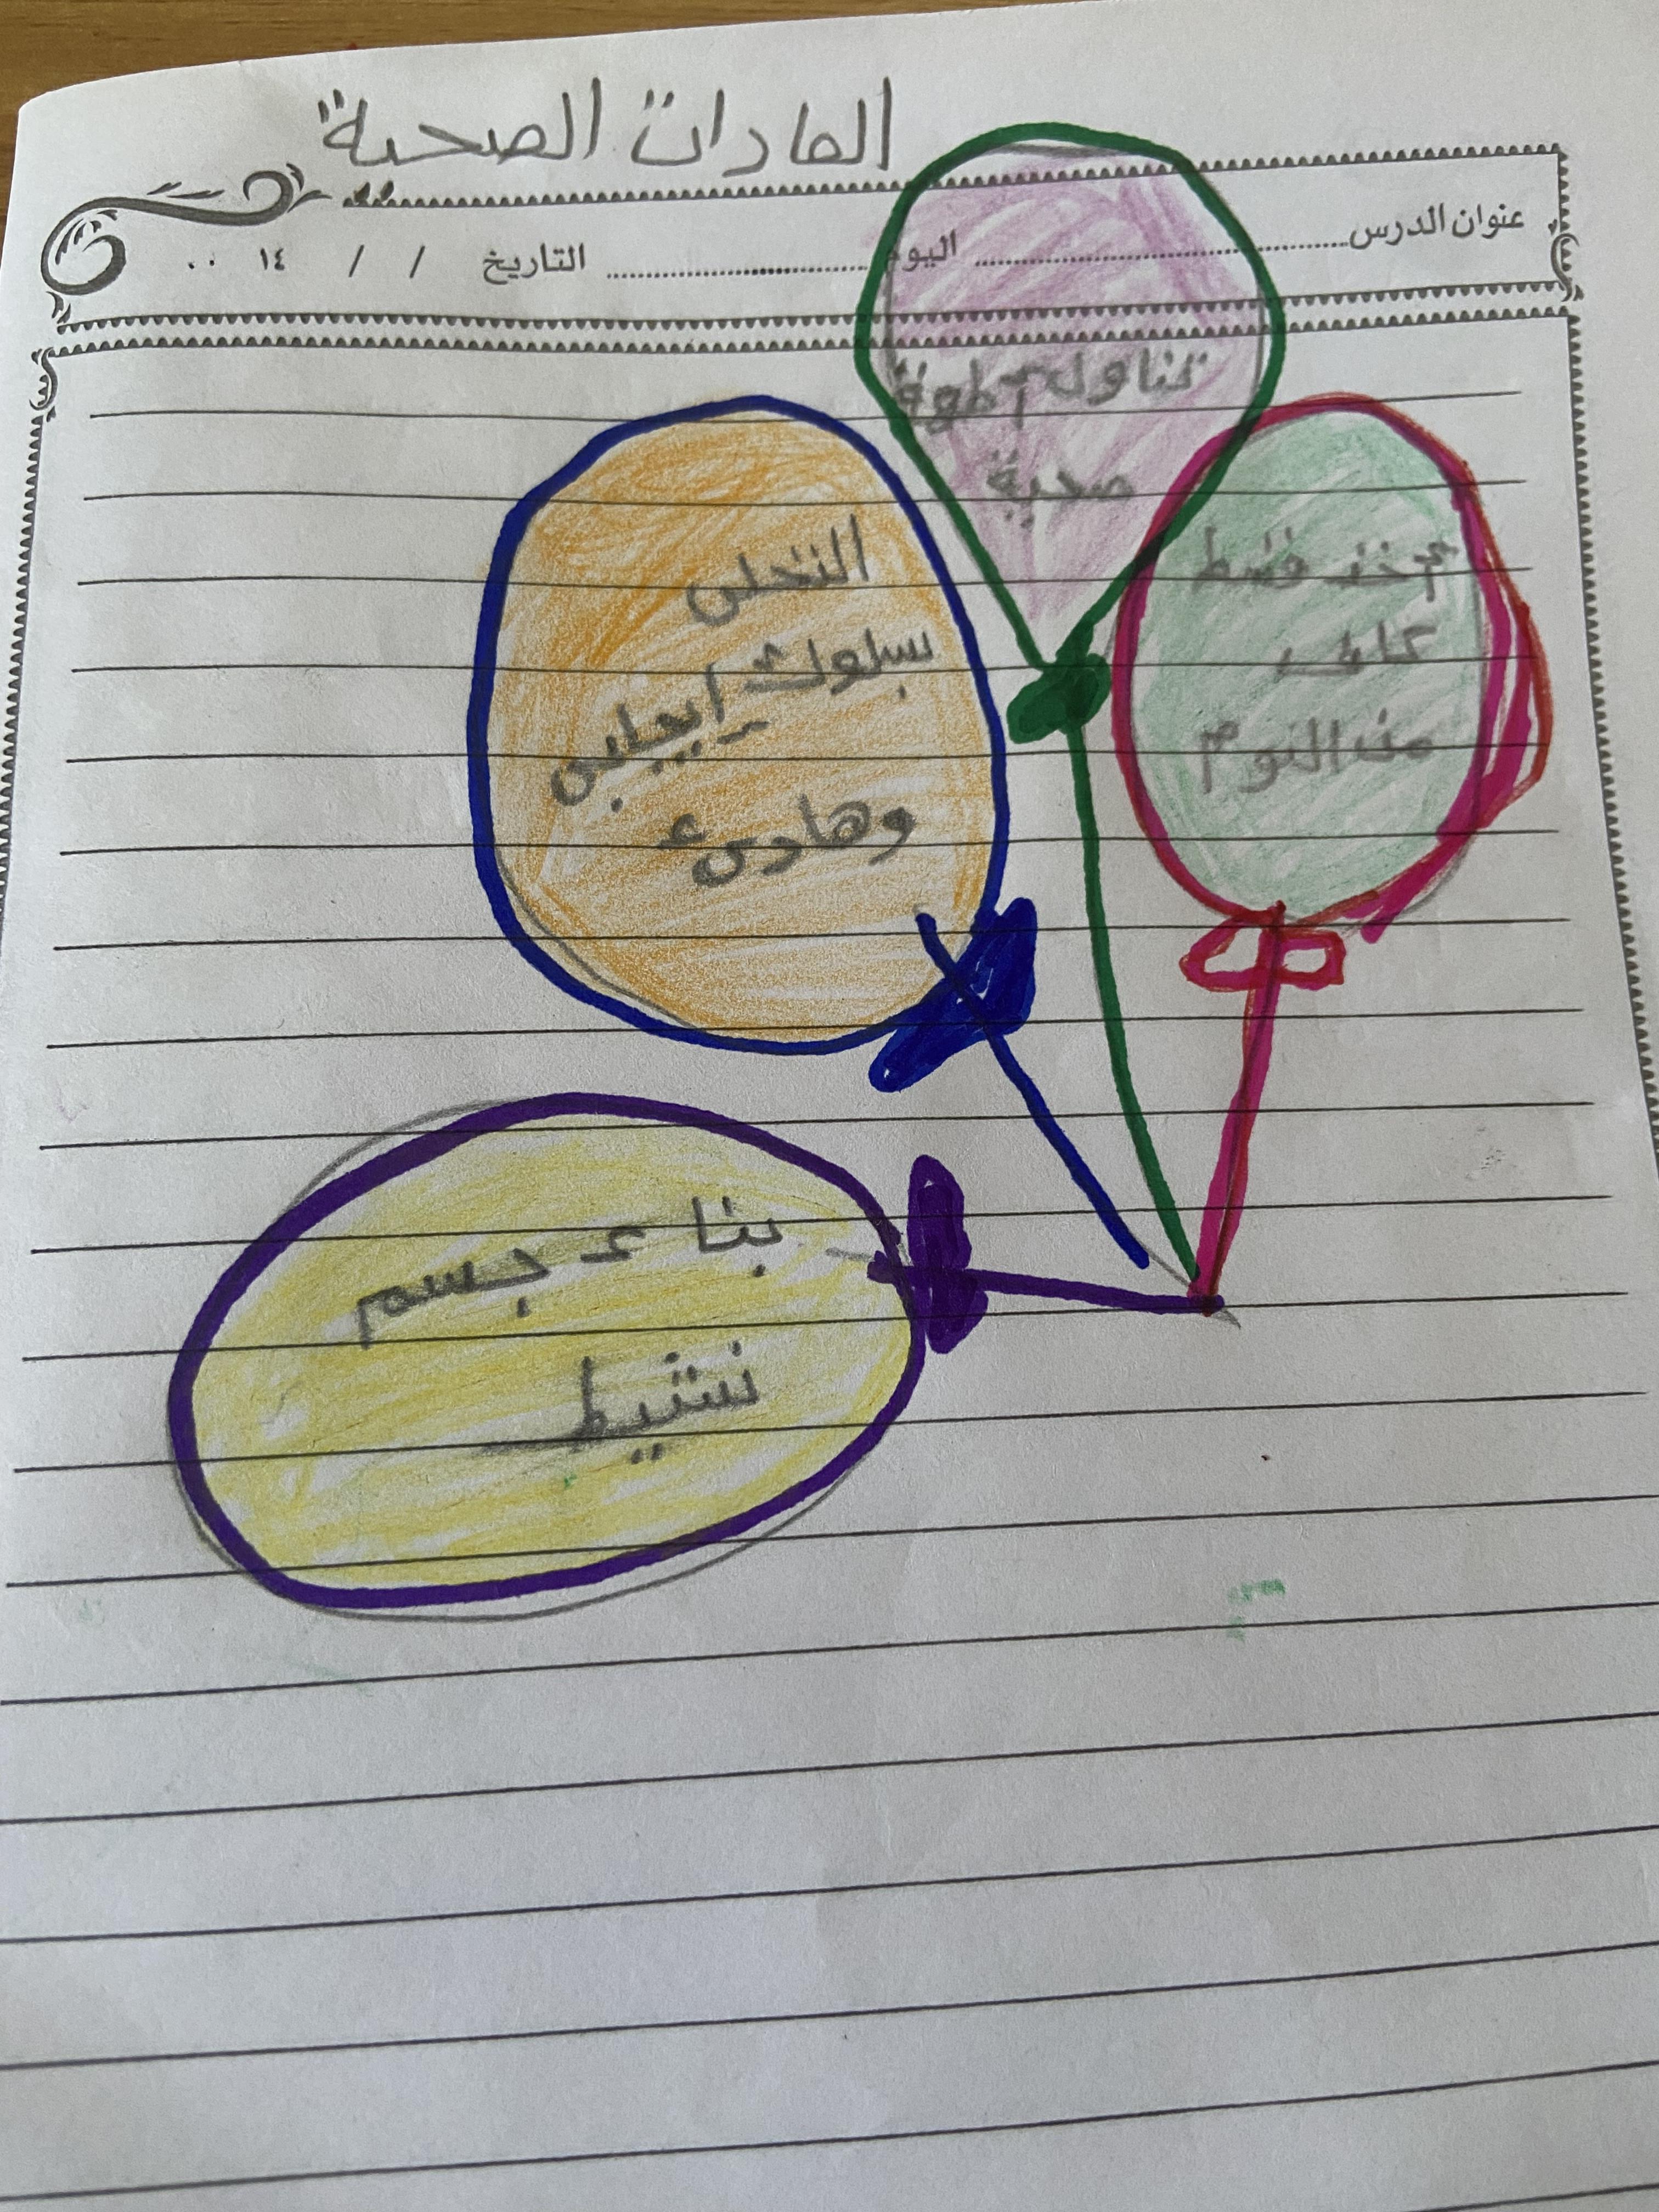 العادات الصحية
عنوان الدرس اليوم التاريخ / / ١٤ ..
تناول أطعمة
صحية
أخذ قسط
كاف
من النوم
التحلي
بسلوك إيجابي
وهادىء
بناء جسم
نشيط